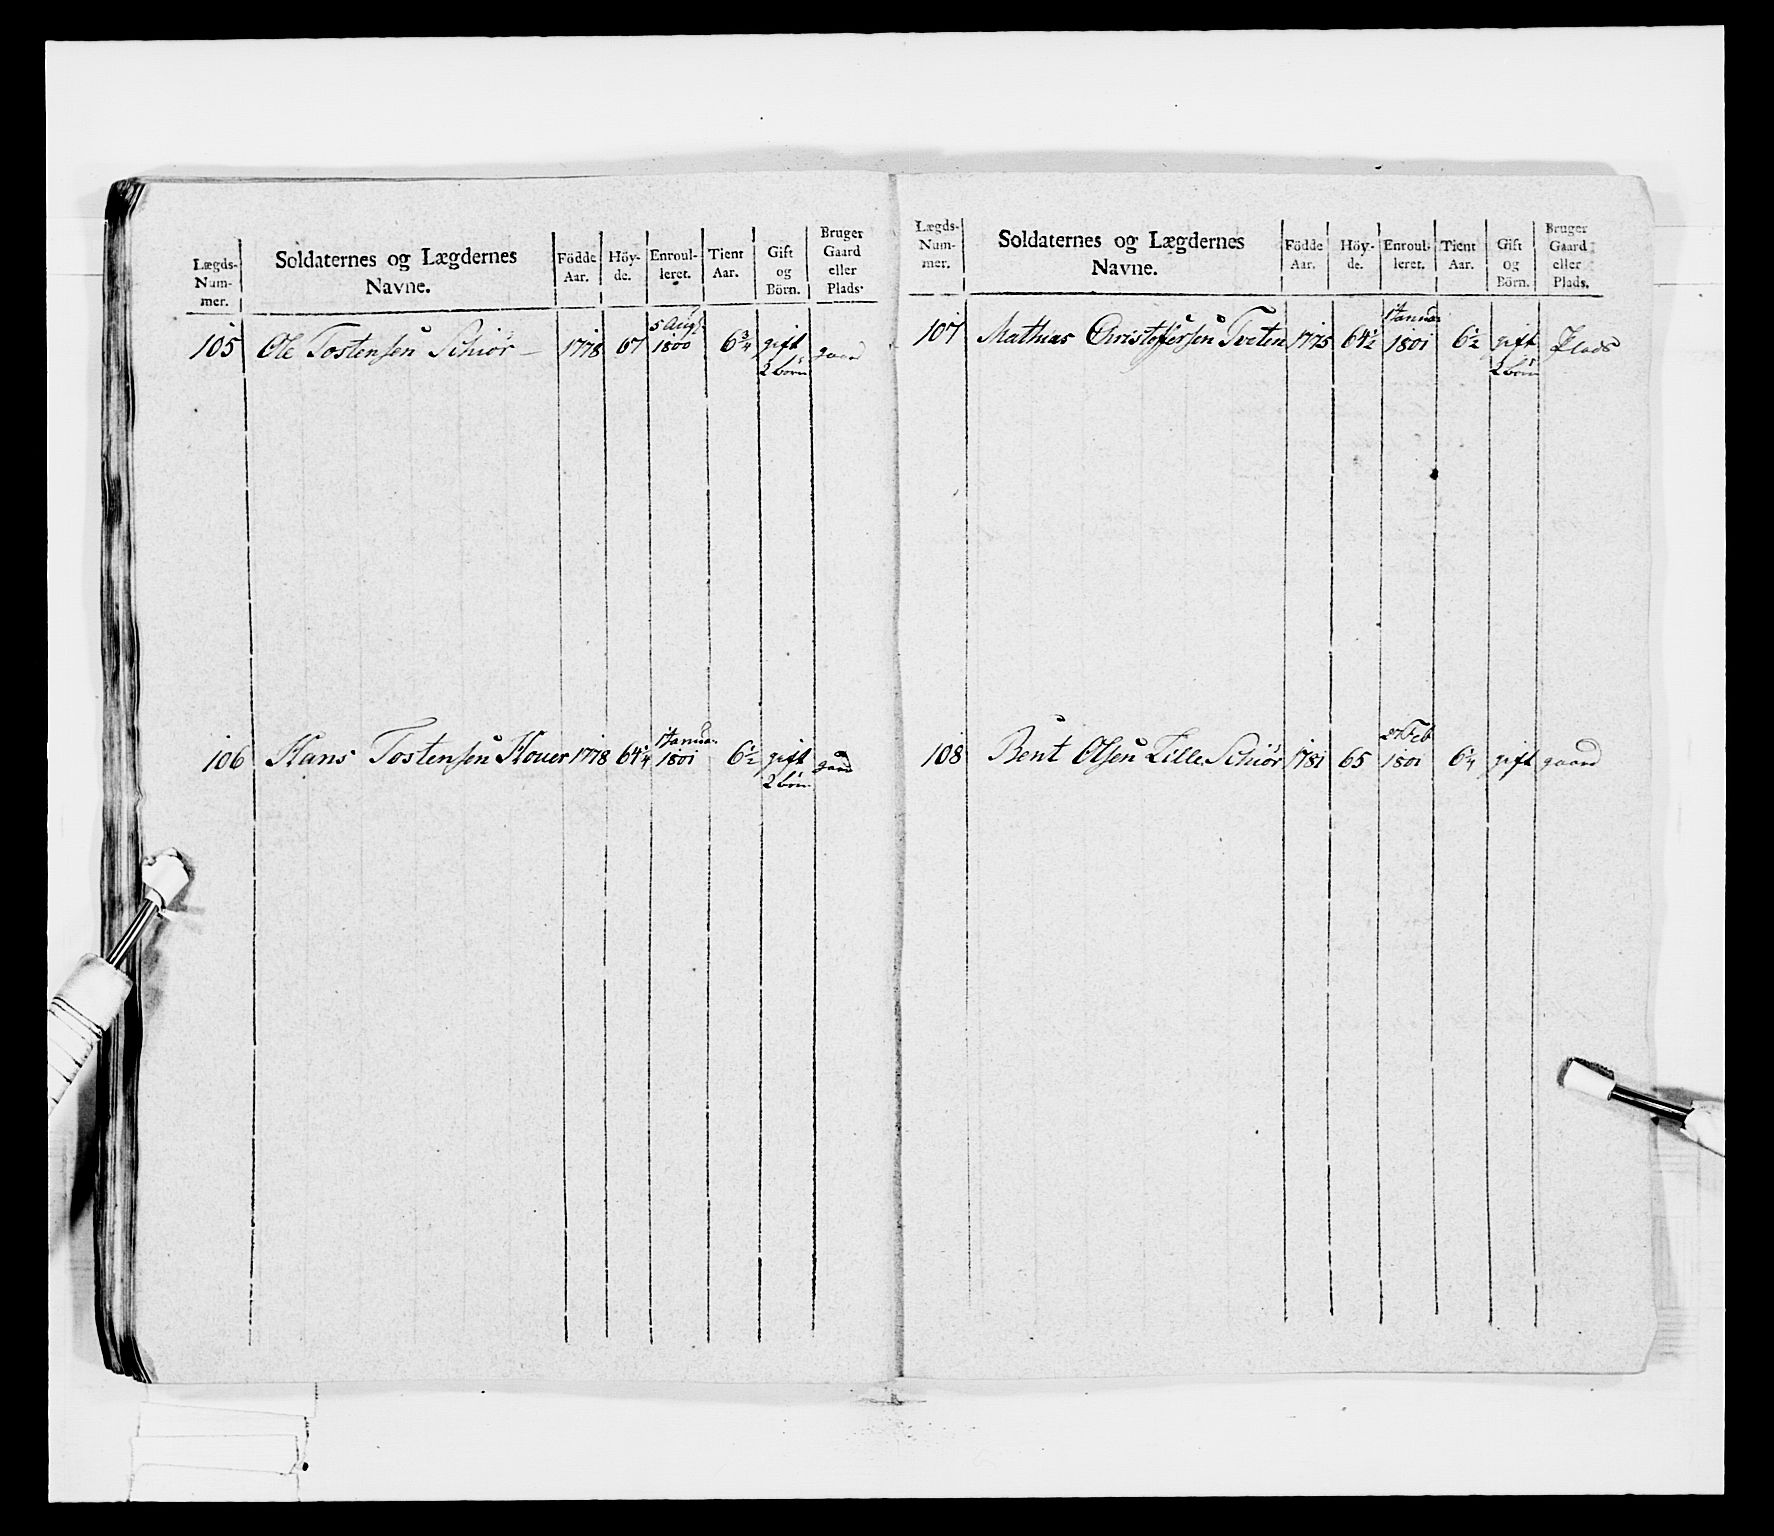 Lægds-
Num-
mer.
Soldaternes og Lægdernes
Navne.
Födde
Aar.
Höy-
de.
Enroul-
leret.
Tient
Aar.
Gift
og
Börn.
Bruger
Gaard
eller
Plads.
5 Aug:
105 Ole Tostensen Schiör 1778 67 1800 6 3/4 gift gaard
2 börn
1 Januar
106 Hans Tostensen 1778 64 1/4 1801 6 1/2 gift gaard
2 börn
Lægds-
Num-
mer.
Soldaternes og Lægdernes
Navne.
Födde
Aar.
Höy-
de.
Enroul-
leret.
Tient
Aar.
Gift
og
Börn.
Bruger
Gaard
eller
Plads.
1 Januar
107 Mathias Christofersen Tveten 1775 64 1/2 1801 6 1/2 gift Plads
2 börn
27 Feb
108 Bent Olsen Lille Schiör 1781 65 1801 6 1/4 gift gaard